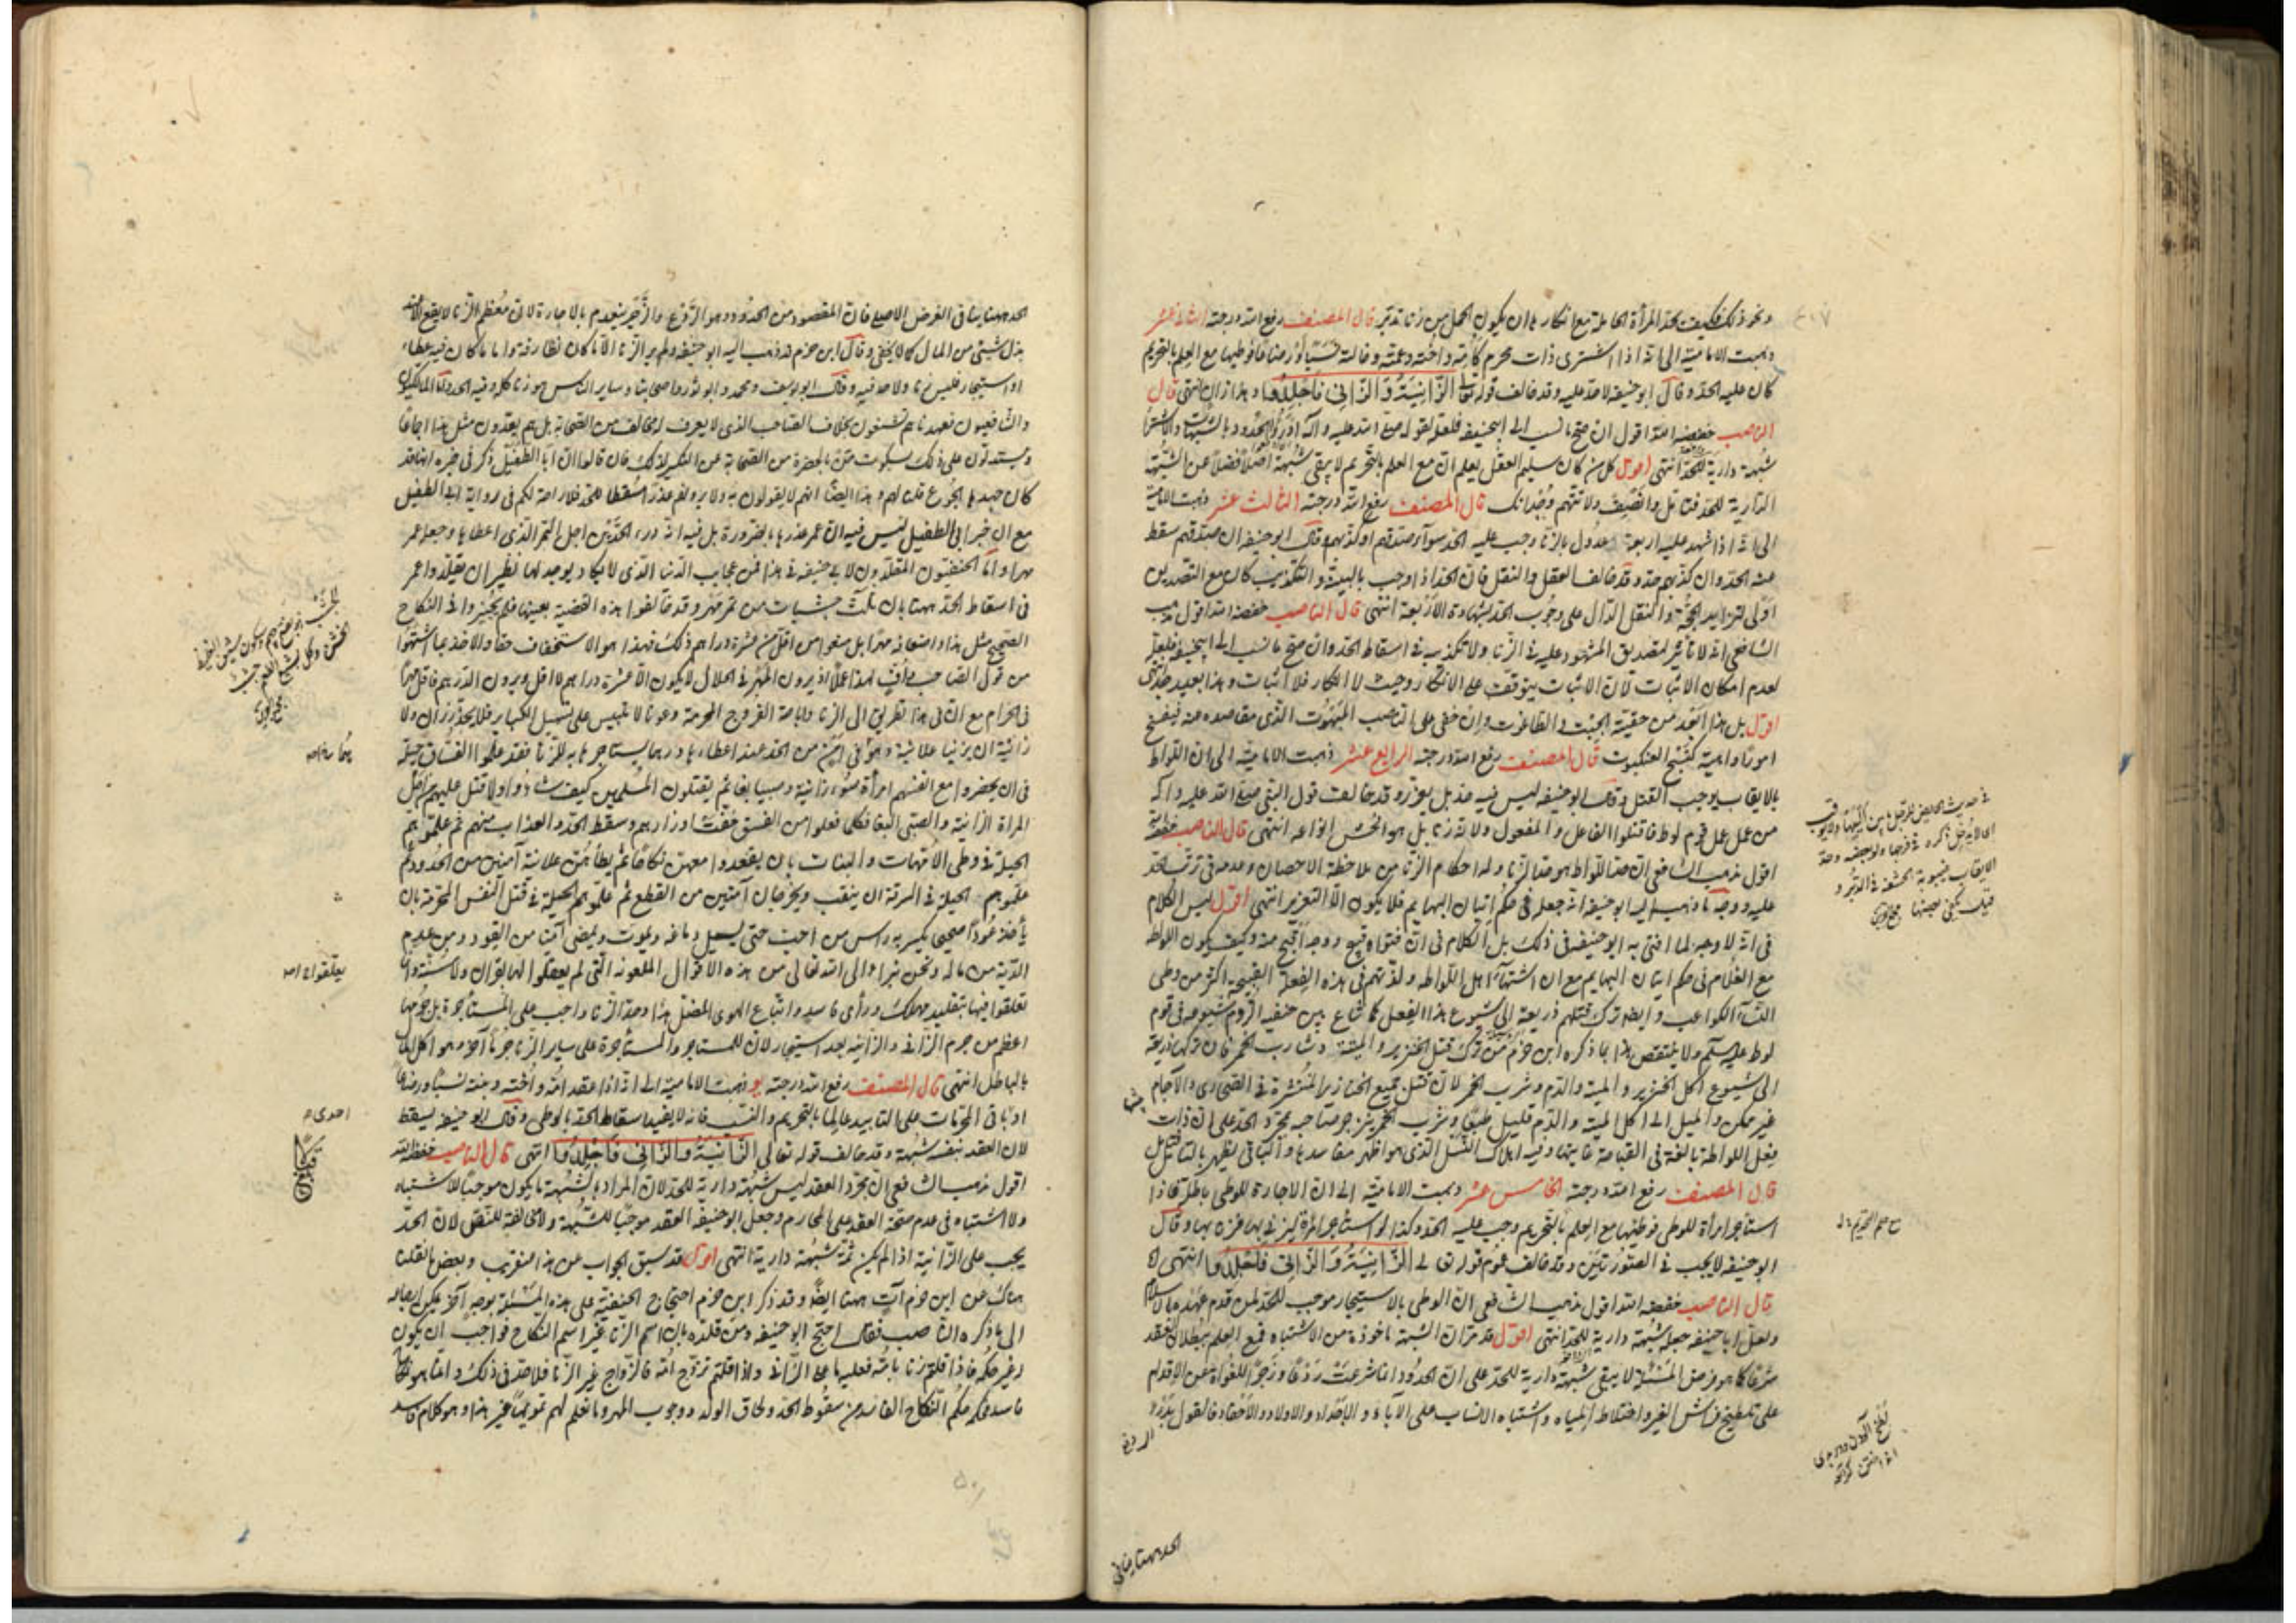 ونحو ذلك فكيف تحد المرأة الحاملة مع انكارها ان يكون الحمل من زنا تدبر قال المصنف رفع الله درجته الثاني عشر
ذهبت الامامية الى انه اذا اشترى ذات محرم كأمه واخته وعمته وخالته نسبا او رضاعا فوطيها مع العلم بالتحريم
كان عليه الحد وقال ابو حنيفه لا حد عليه وقد خالف قوله تعالى الزَّانِيَةُ وَالزَّانِي فَاجْلِدُوا انتهى قال
الناصب خفضه الله اقول ان صح ما نسب الى ابي حنيفه فلعله لقوله صلى الله عليه وآله ادرؤا الحدود بالشبهات
شبهة دارية للحد انتهى اقول كل من كان سليم العقل يعلم ان مع العلم بالتحريم لا يبقى شبهة اصلا فضلا عن الشبهة
الدارية للحد فتامل وانصف ولا تتهم وجدانك قال المصنف رفع الله درجته الثالث عشر ذهبت الامامية
الى انه اذا شهد عليه اربعة عدول بالزنا وجب عليه الحد سواء صدقهم او كذبهم وقال ابو حنيفه ان صدقهم سقط
عنه الحد وان كذبهم حد وقد خالف العقل والنقل فان الحد اذا وجب بالبينة والتكذيب كان مع التصديق
اولى لتزايد الحجة والنقل الدال على وجوب الحد بشهادة الاربعة انتهى قال الناصب خفضه الله اقول مذهب
الشافعي انه لا تأثير لتصديق المشهود عليه في الزنا ولا تكذيبه في اسقاط الحد وان صح ما نسب الى ابي حنيفه فلعله
لعدم امكان الاثبات لان الاثبات يتوقف على الانكار وحيث لا انكار فلا اثبات وهذا بعيد جدا انتهى
اقول بل هذا ابعد من حقية الجبت والطاغوت وان خفى على الناصب المبهوت الذي مقاصده عنه
امورا واهية كنسج العنكبوت قال المصنف رفع الله درجته الرابع عشر ذهبت الامامية الى ان اللواط
بالايقاب يوجب القتل وقال ابو حنيفه ليس فيه حد بل يعزر وقد خالف قول النبي صلى الله عليه وآله
من عمل عمل قوم لوط فاقتلوا الفاعل والمفعول ولانه زنا بل هو افحش انواعه انتهى قال الناصب خفضه الله
اقول مذهب الشافعي ان حد اللواط هو حد الزنا وله احكام الزنا من ملاحظة الاحصان وعدمه في ترتب الحد
عليه ووجه ما ذهب اليه ابو حنيفه انه جعله في حكم اتيان البهايم فلا يكون الا التعزير انتهى اقول ليس الكلام
في انه لا وجه لما افتى به ابو حنيفه في ذلك بل الكلام في ان فتواه قبيح ووجهه اقبح منه وكيف يكون اللواط
مع الغلام في حكم اتيان البهايم مع ان اشتهاء اهل اللواطه ولذتهم في هذه الفعلة القبيحه اكثر من وطى
النساء الكواعب وايضا ترك قتلهم ذريعة الى شيوع هذا الفعل كما شاع بين حنفيه الروم شيوعه في قوم
لوط عليه السلم ولا ينتقض هذا بما ذكره ابن حزم من ترك قتل آكل الخنزير والميتة وشارب الخمر فان تركها ذريعة
الى شيوع اكل الخنزير والميتة والدم وشرب الخمر لان قتل جميع الخنازير المنتشرة في الصحارى والآجام
غير ممكن والميل الى اكل الميتة والدم قليل طبعا وشرب الخمر ينزجر صاحبه بمجرد الحد على ان ذات
فعل اللواطة بالغة في القباحة غايتها وفيه اهلاك النسل الذي هو اظهر مفاسدها والباقي يظهر بالتامل
قال المصنف رفع الله درجته الخامس عشر ذهبت الامامية الى ان الاجارة للوطى باطلة فاذا
استأجر امرأة للوطى فوطيها مع العلم بالتحريم وجب عليه الحد وكذا لو استأجر امرأة ليزني بها فزنى بها وقال
ابو حنيفه لا يجب في الصورتين وقد خالف عموم قوله تعالى الزَّانِيَةُ وَالزَّانِي فَاجْلِدُوا انتهى
قال الناصب خفضه الله اقول مذهب الشافعي ان الوطى بالاستيجار موجب للحد لمن قدم عهده بالاسلام
ولعل ابا حنيفه جعله شبهة دارية للحد انتهى اقول قد مر ان الشبهة ماخوذة من الاشتباه فمع العلم ببطلان العقد
شرعا كما هو فرض المسئلة لا يبقى شبهة دارية للحد على ان الحدود انما شرعت ردعا وزجرا للغواة عن الاقدام
على تلطيخ فراش الغير واختلاط المياه واشتباه الانساب على الآباء والاجداد والاولاد والاحفاد فالقول بدرء
في حديث
الايقاب غيبوبة الحشفة في الدبر و
الحد ههنا ينافي
الحد ههنا ينافي الغرض الاصلى فان المقصود من الحدود وهو الردع والزجر ينعدم بالاجارة لان معظم الزنا لا يقع الا عند
بذل شيئ من المال كما لا يخفى وقال ابن حزم قد ذهب اليه ابو حنيفه ولم ير الزنا الا ما كان مطارفة واما ما كان فيه عطاء
او استيجار فليس بزنا ولا حد فيه وقال ابو يوسف ومحمد وابو ثور واصحابنا وساير الناس هو زنا كله وفيه الحد واما المالكيون
والشافعيون فعهدناهم يشنعون بخلاف الصاحب الذي لا يعرف له مخالف من الصحابة بل هم يعدون مثل هذا اجماعا
ويستدلون على ذلك بسكوت من بالحضرة من الصحابة عن النكير لذلك فان قالوا ان ابا الطفيل ذكر في خبره انها قد
كان جهدها الجوع قلنا لهم وهذا ايضا انتم لا يقولون به ولا يرونه عذرا مسقطا للحد فلا راحة لكم في رواية ابي الطفيل
مع ان خبر ابي الطفيل ليس فيه ان عمر عذرها بالضرورة بل فيه انه درء الحد من اجل التمر الذي اعطاها وجعله عمر
مهرا واما الحنفيون المقلدون لابي حنيفه في هذا فمن عجايب الدنيا الذي لا يكاد يوجد لها نظير ان يقلدوا عمر
في اسقاط الحد ههنا بان ثلث حثيات من تمر مهر وقد خالفوا هذه القضية بعينها فلم يجيزوا في النكاح
الصحيح مثل هذا واضعافه مهرا بل منعوا من اقل من عشرة دراهم في ذلك فهذا هو الاستخفاف حقا والاخذ بما اشتهوا
من قول الصاحب
في الحرام مع ان في هذا تطريق الى الزنا واباحة الفروج المحرمة وعونا لابليس على تسهيل الكبائر فلا يحذر زان ولا
زانية ان يزنيا علانية وهو في امن من الحد عند اعطاءها درهما يستاجرها به للزنا فقد علموا الفساق حيلة
في ان يحضروا مع انفسهم امرأة سوء زانية وصبيا بغاء ثم يقتلون المسلمين كيف شاؤا ولا قتل عليهم من اجل
المراة الزانية والصبى البغا فكلما فعلوا من الفسق خفت اوزارهم وسقط الحد والعذاب منهم ثم علموهم
الحيلة في وطى الامهات والبنات بان يعقدوا معهن نكاحا ثم يطأهن علانية آمنين من الحدود ثم
علموهم الحيلة في السرقة ان ينقب ويخرجان آمنين من القطع ثم علموهم الحيلة في قتل النفس المحرمة بان
يأخذ عودا صحيحا يكسر به راس من احب حتى يسيل دماغه ويموت ويمضى آمنا من القود ومن غرم
الدية من ماله ونحن نبرء الى الله تعالى من هذه الاقوال الملعونه التي لم يعقلوا لها بقران ولا سنة وانما
تعلقوا فيها بتقليد مهلك ورأى فاسد واتباع الهوى المضل هذا وحد الزنا واجب على المستأجرة بل جرمها
اعظم من جرم الزاني والزانيه بغير استيجار لان للمستاجر والمستأجرة على ساير الزنا جرما آخر وهو اكل المال
بالباطل انتهى قال المصنف رفع الله درجته يو ذهبت الامامية الى انه اذا عقد على امه واخته وبنته نسبا ورضاعا
او باقى المحرمات على التابيد عالما بالتحريم والنسب فانه لا يفيد اسقاط الحد بالوطى وقال ابو حنيفه يسقط
لان العقد بنفسه شبهة وقد خالف قوله تعالى الزَّانِيَةُ وَالزَّانِي فَاجْلِدُوا انتهى قال الناصب خفضه الله
اقول مذهب الشافعي ان مجرد العقد ليس شبهة دارية للحد لان المراد بالشبهة ما يكون موجبا للاشتباه
ولا اشتباه في عدم صحة العقد على المحارم وجعل ابو حنيفه العقد موجبا للشبهة ولا مخالفة للنص لان الحد
يجب على الزانية اذا لم يكن ثمة شبهة دارية انتهى اقول قد سبق الجواب عن هذا عن قريب وبعض ما نقلنا
هناك عن ابن حزم آت ههنا ايضا وقد ذكر ابن حزم احتجاج الحنفية على هذه المسئلة بوجه آخر يمكن ارجاعه
الى ما ذكره الناصب فقال احتج ابو حنيفه ومن قلده بان اسم الزنا غير اسم النكاح فواجب ان يكون
له غير حكمه فاذا قلتم زنا بامه فعليه ما على الزاني واذا قلتم تزوج امه فالزواج غير الزنا فلا حد في ذلك وانما هو نكاح
فاسد فحكمه حكم النكاح الفاسد من سقوط الحد ولحاق الولد ووجوب المهر وما نعلم لهم تمويها غير هذا وهو كلام فاسد